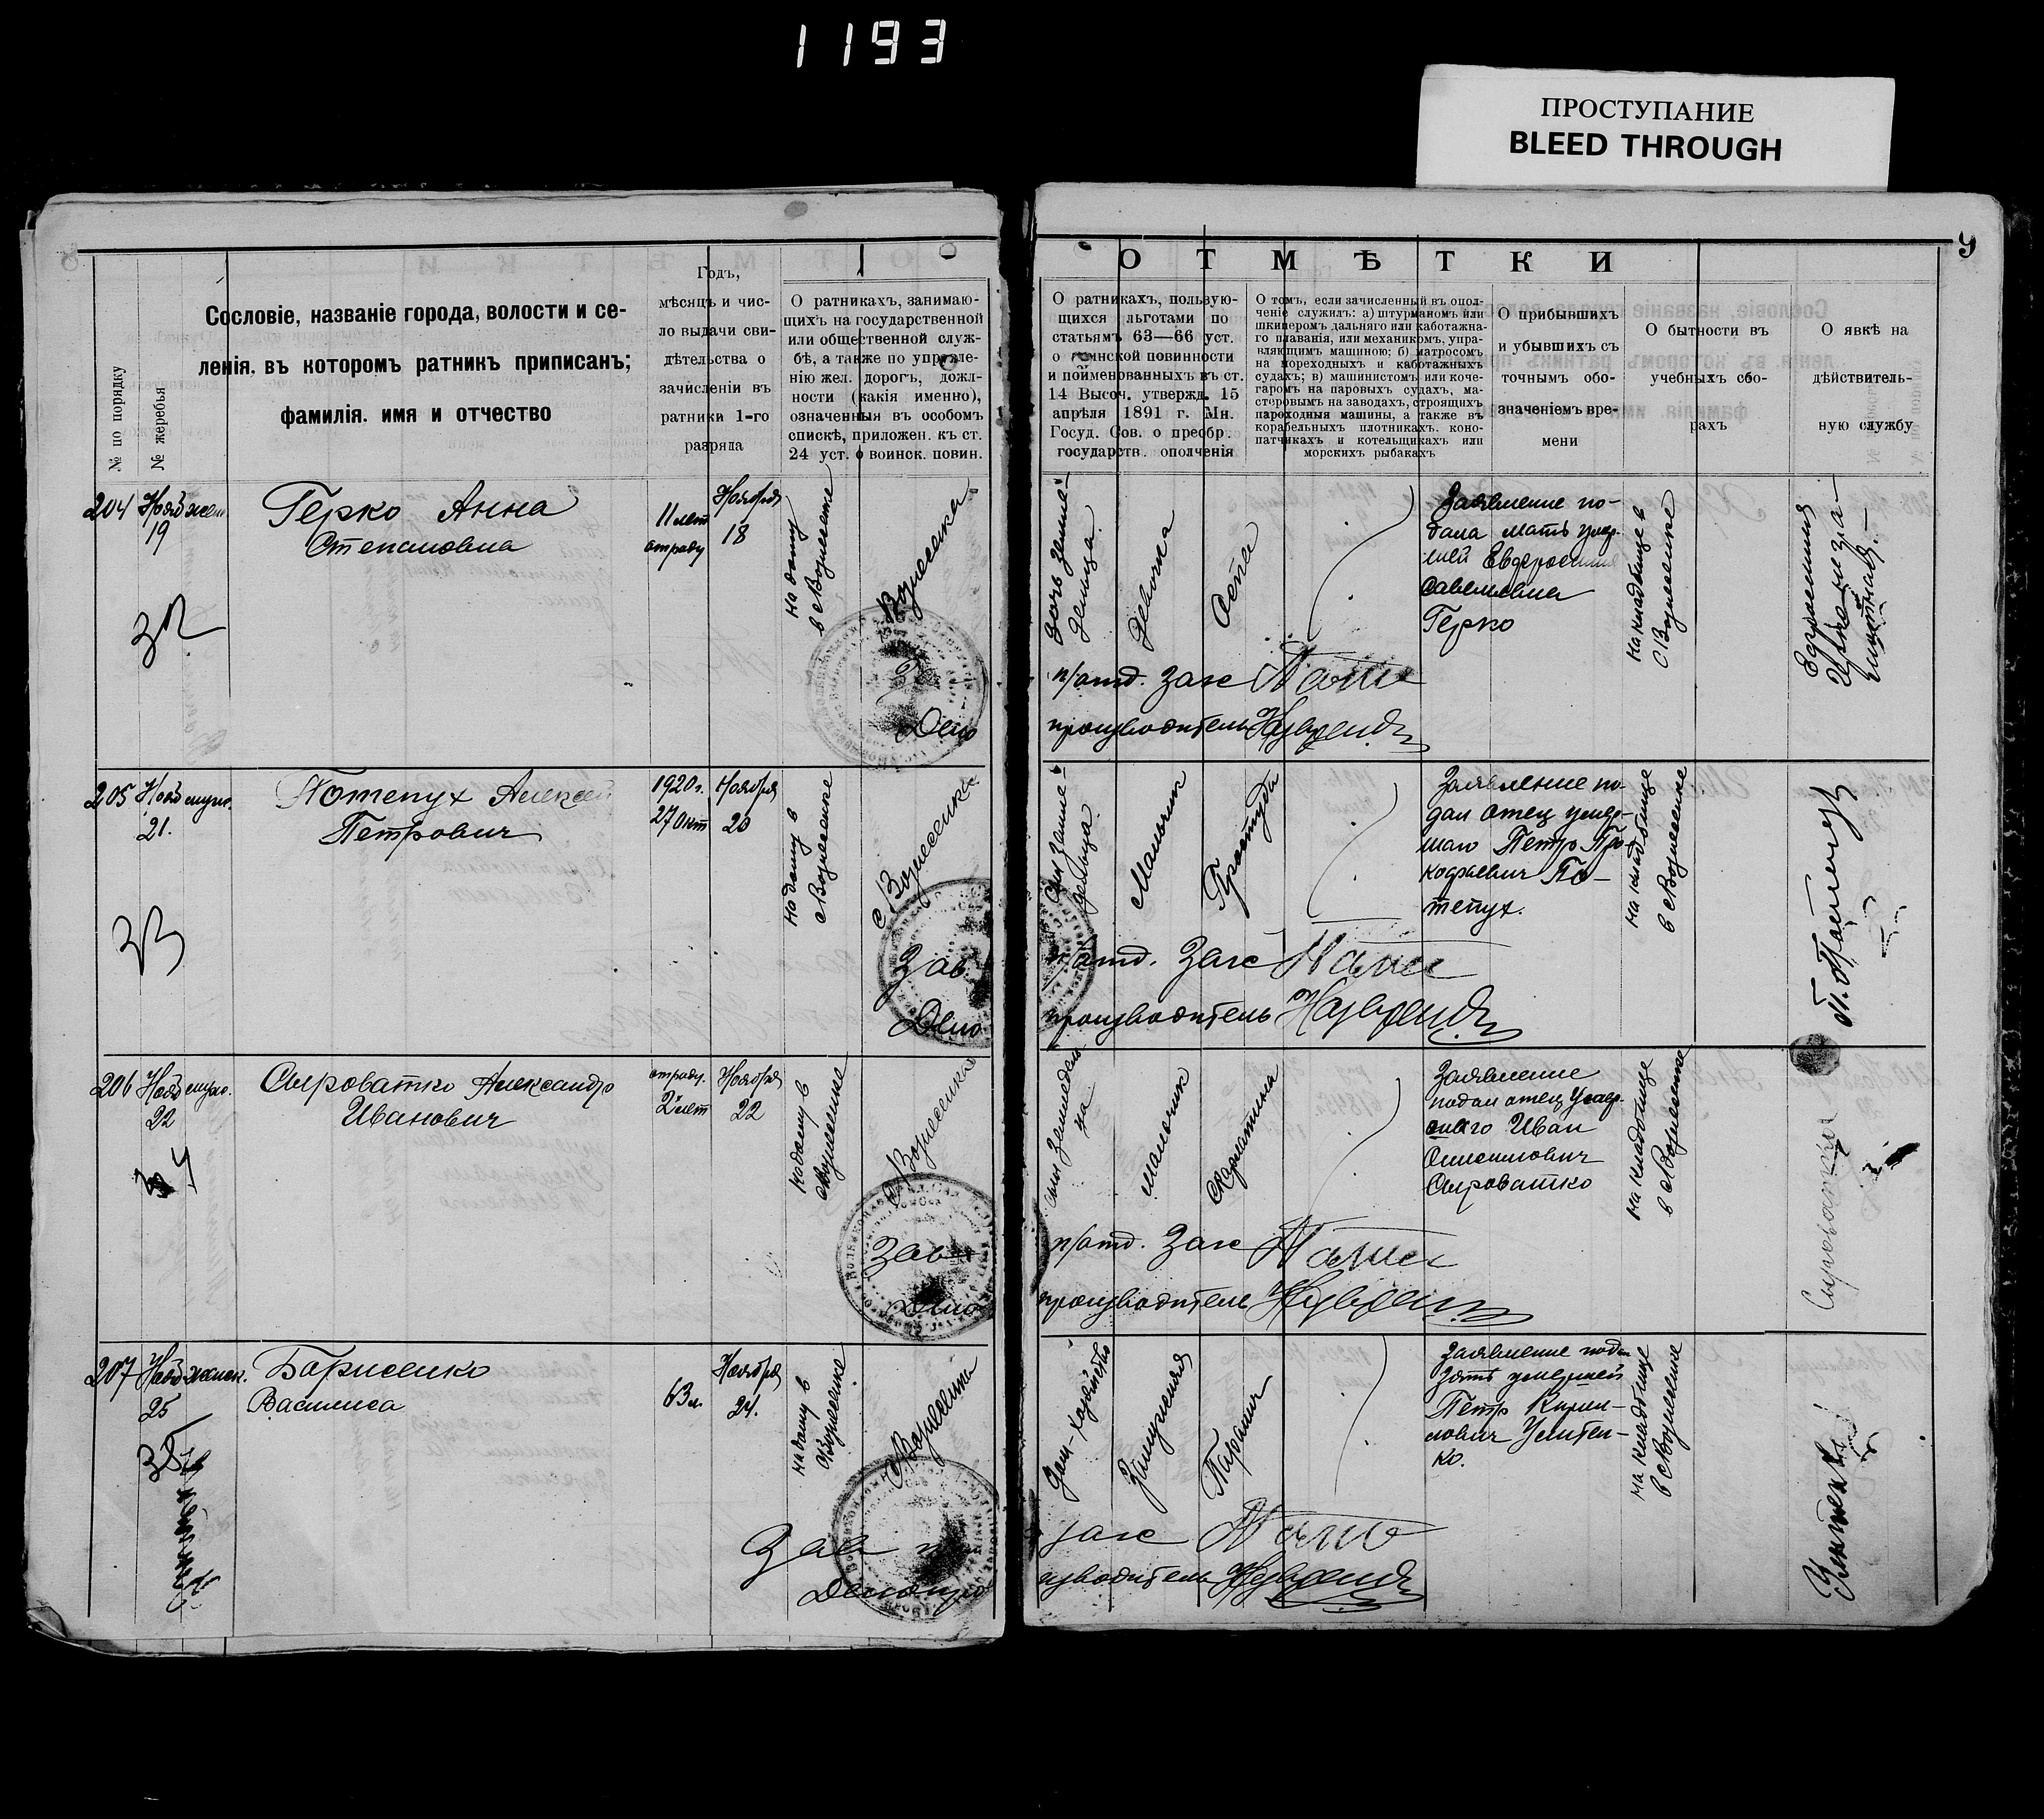 1193
ПРОСТУПАНИЕ
BLEED THROUGH
9
№ по порядку
№ жеребья
Сословіе, названіе города, волости и се-
ленія. въ которомъ ратникъ приписанъ;
фамилія. имя и отчество
Годъ,
мѣсяцъ и чис-
ло выдачи сви-
дѣтельства о
зачисленіи въ
ратники 1-го
разряда
О ратникахъ, занимаю-
щихъ на государственной
или общественной служ-
бѣ, а также по управле-
нію жел. дорогъ, долж-
ности (какія именно),
означенныя въ особомъ
спискѣ, приложен. къ ст.
24 уст. о воинск. повин.
ОТМѢТКИ
О ратникахъ, пользую-
щихся льготами по
статьямъ 63—66 уст.
о воинской повинности
и поименованныхъ въ ст.
14 Высоч. утвержд. 15
апрѣля 1891 г. Мн.
Госуд. Сов. о преобр.
государств. ополченія
О томъ, если зачисленный въ опол-
ченіе служилъ: а) штурманомъ или
шкиперомъ дальняго или каботажна-
го плаванія, или механикомъ, упра-
вляющимъ машиною; б) матросомъ
на мореходныхъ и каботажныхъ
судахъ; в) машинистомъ или коче-
гаромъ на паровыхъ судахъ, ма-
стеровымъ на заводахъ, строящихъ
пароходныя машины, а также въ
корабельныхъ плотникахъ. коно-
патчикахъ и котельщикахъ или
морскихъ рыбакахъ
О прибывшихъ
и убывшихъ съ
точнымъ обо-
значеніемъ вре-
мени
О бытности въ
учебныхъ сбо-
рахъ
О явкѣ на
дѣйствитель-
ную службу
204 Нояб жен
19
32
Герко Анна
Степановна
11 лет
отроду
Ноября
18
на дому
в с Вознесенке
с Вознесенка
З
Дело
дочь земле-
дельца.
девочка
Оспа
Заявление по-
дала мать умер-
шей Евфросиния
Савельевна
Герко
на кладбище в
с Вознесенке
п/отд. загс
производитель
205 Нояб муж.
21.
33
Потепух Алексей
Петрович
1920 г.
27 окт
Ноября
20
на дому в
с Вознесенке
с Вознесенка
Зав.
Дело
сын земле-
дельца.
Мальчик
Простуда
Заявление по-
дал отец умер-
шаго Петр Про-
кофиевич По-
тепух.
на кладбище
в с Вознесенке
П. Потепух
п/отд. загс
производитель
206 Нояб муж.
22
34
Сыроватко Александр
Иванович
отроду.
2 лет
Ноября
22
на дому в
с Вознесенке
с Вознесенка
Зав
Дело
сын земледель-
ца
мальчик
Скарлатина
Заявление
подал отец умер-
шаго Иван
Сыроватко
на кладбище
в с Вознесенке
Сыроватка
п/отд. загс
производитель
207 Нояб женск.
25
35
Борисенко
Василиса
63 л.
Ноября
24.
на дому в
с Вознесенке
с Вознесенка
Зав
Делопро
дом-хозяйство
Замужняя
Паралич
Заявление подал
зять умершей
Петр Кирил-
лович Уситен-
ко.
на кладбище
в с Вознесенке
загс
изводитель